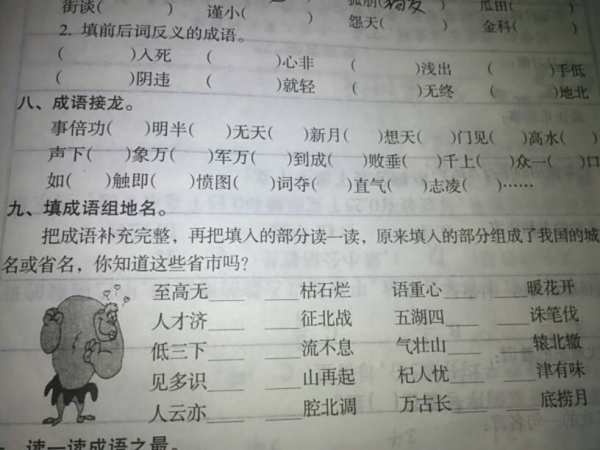 街谈(　　　)　谨小(　　　)　孤朋(狗友)　瓜田(　　　)
怨天(　　　)　金科(　　　)
2. 填前后词反义的成语。
(　　　)人死　(　　　)心非　(　　　)浅出　(　　　)手低
(　　　)阴违　(　　　)就轻　(　　　)无终　(　　　)地北
八、成语接龙。
事倍功(　　)明半(　　)无天(　　)新月(　　)想天(　　)门见(　　)高水(　　)
声下(　　)象万(　　)军万(　　)到成(　　)败垂(　　)千上(　　)众一(　　)口
如(　　)触即(　　)愤图(　　)词夺(　　)直气(　　)志凌(　　)……
九、填成语组地名。
把成语补充完整，再把填入的部分读一读，原来填入的部分组成了我国的城
名或省名，你知道这些省市吗？
至高无____　____枯石烂　语重心____　____暖花开
人才济____　____征北战　五湖四____　____诛笔伐
低三下____　____流不息　气壮山____　____辕北辙
见多识____　____山再起　杞人忧____　____津有味
人云亦____　____腔北调　万古长____　____底捞月
读一读成语之最。